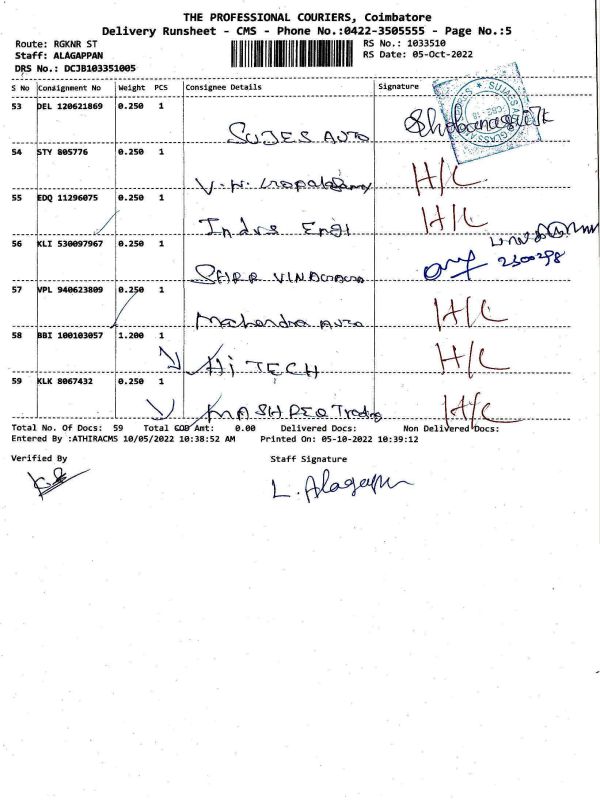 THE PROFESSIONAL COURIERS, Coimbatore
Delivery Runsheet - CMS - Phone No.:0422-3505555 - Page No.:5
Route: RGKNR ST
Staff: ALAGAPPAN
DRS No.: DCJB103351005
RS No.: 1033510
RS Date: 05-Oct-2022
S No Consignment No Weight PCS Consignee Details Signature
53 DEL 120621869 0.250 1
SUJES AUTO
54 STY 805776 0.250 1
H/C
55 EDQ 11296075 0.250 1
Indus Engi H/C
56 KLI 530097967 0.250 1
2300298
57 VPL 940623809 0.250 1
Mahendra AUTO H/C
58 BBI 100103057 1.200 1
Hi TECH H/C
59 KLK 8067432 0.250 1
Trading H/C
Total No. Of Docs: 59 Total COD Amt: 0.00 Delivered Docs: Non Delivered Docs:
Entered By :ATHIRACMS 10/05/2022 10:38:52 AM Printed On: 05-10-2022 10:39:12
Verified By Staff Signature
L. Alagappn